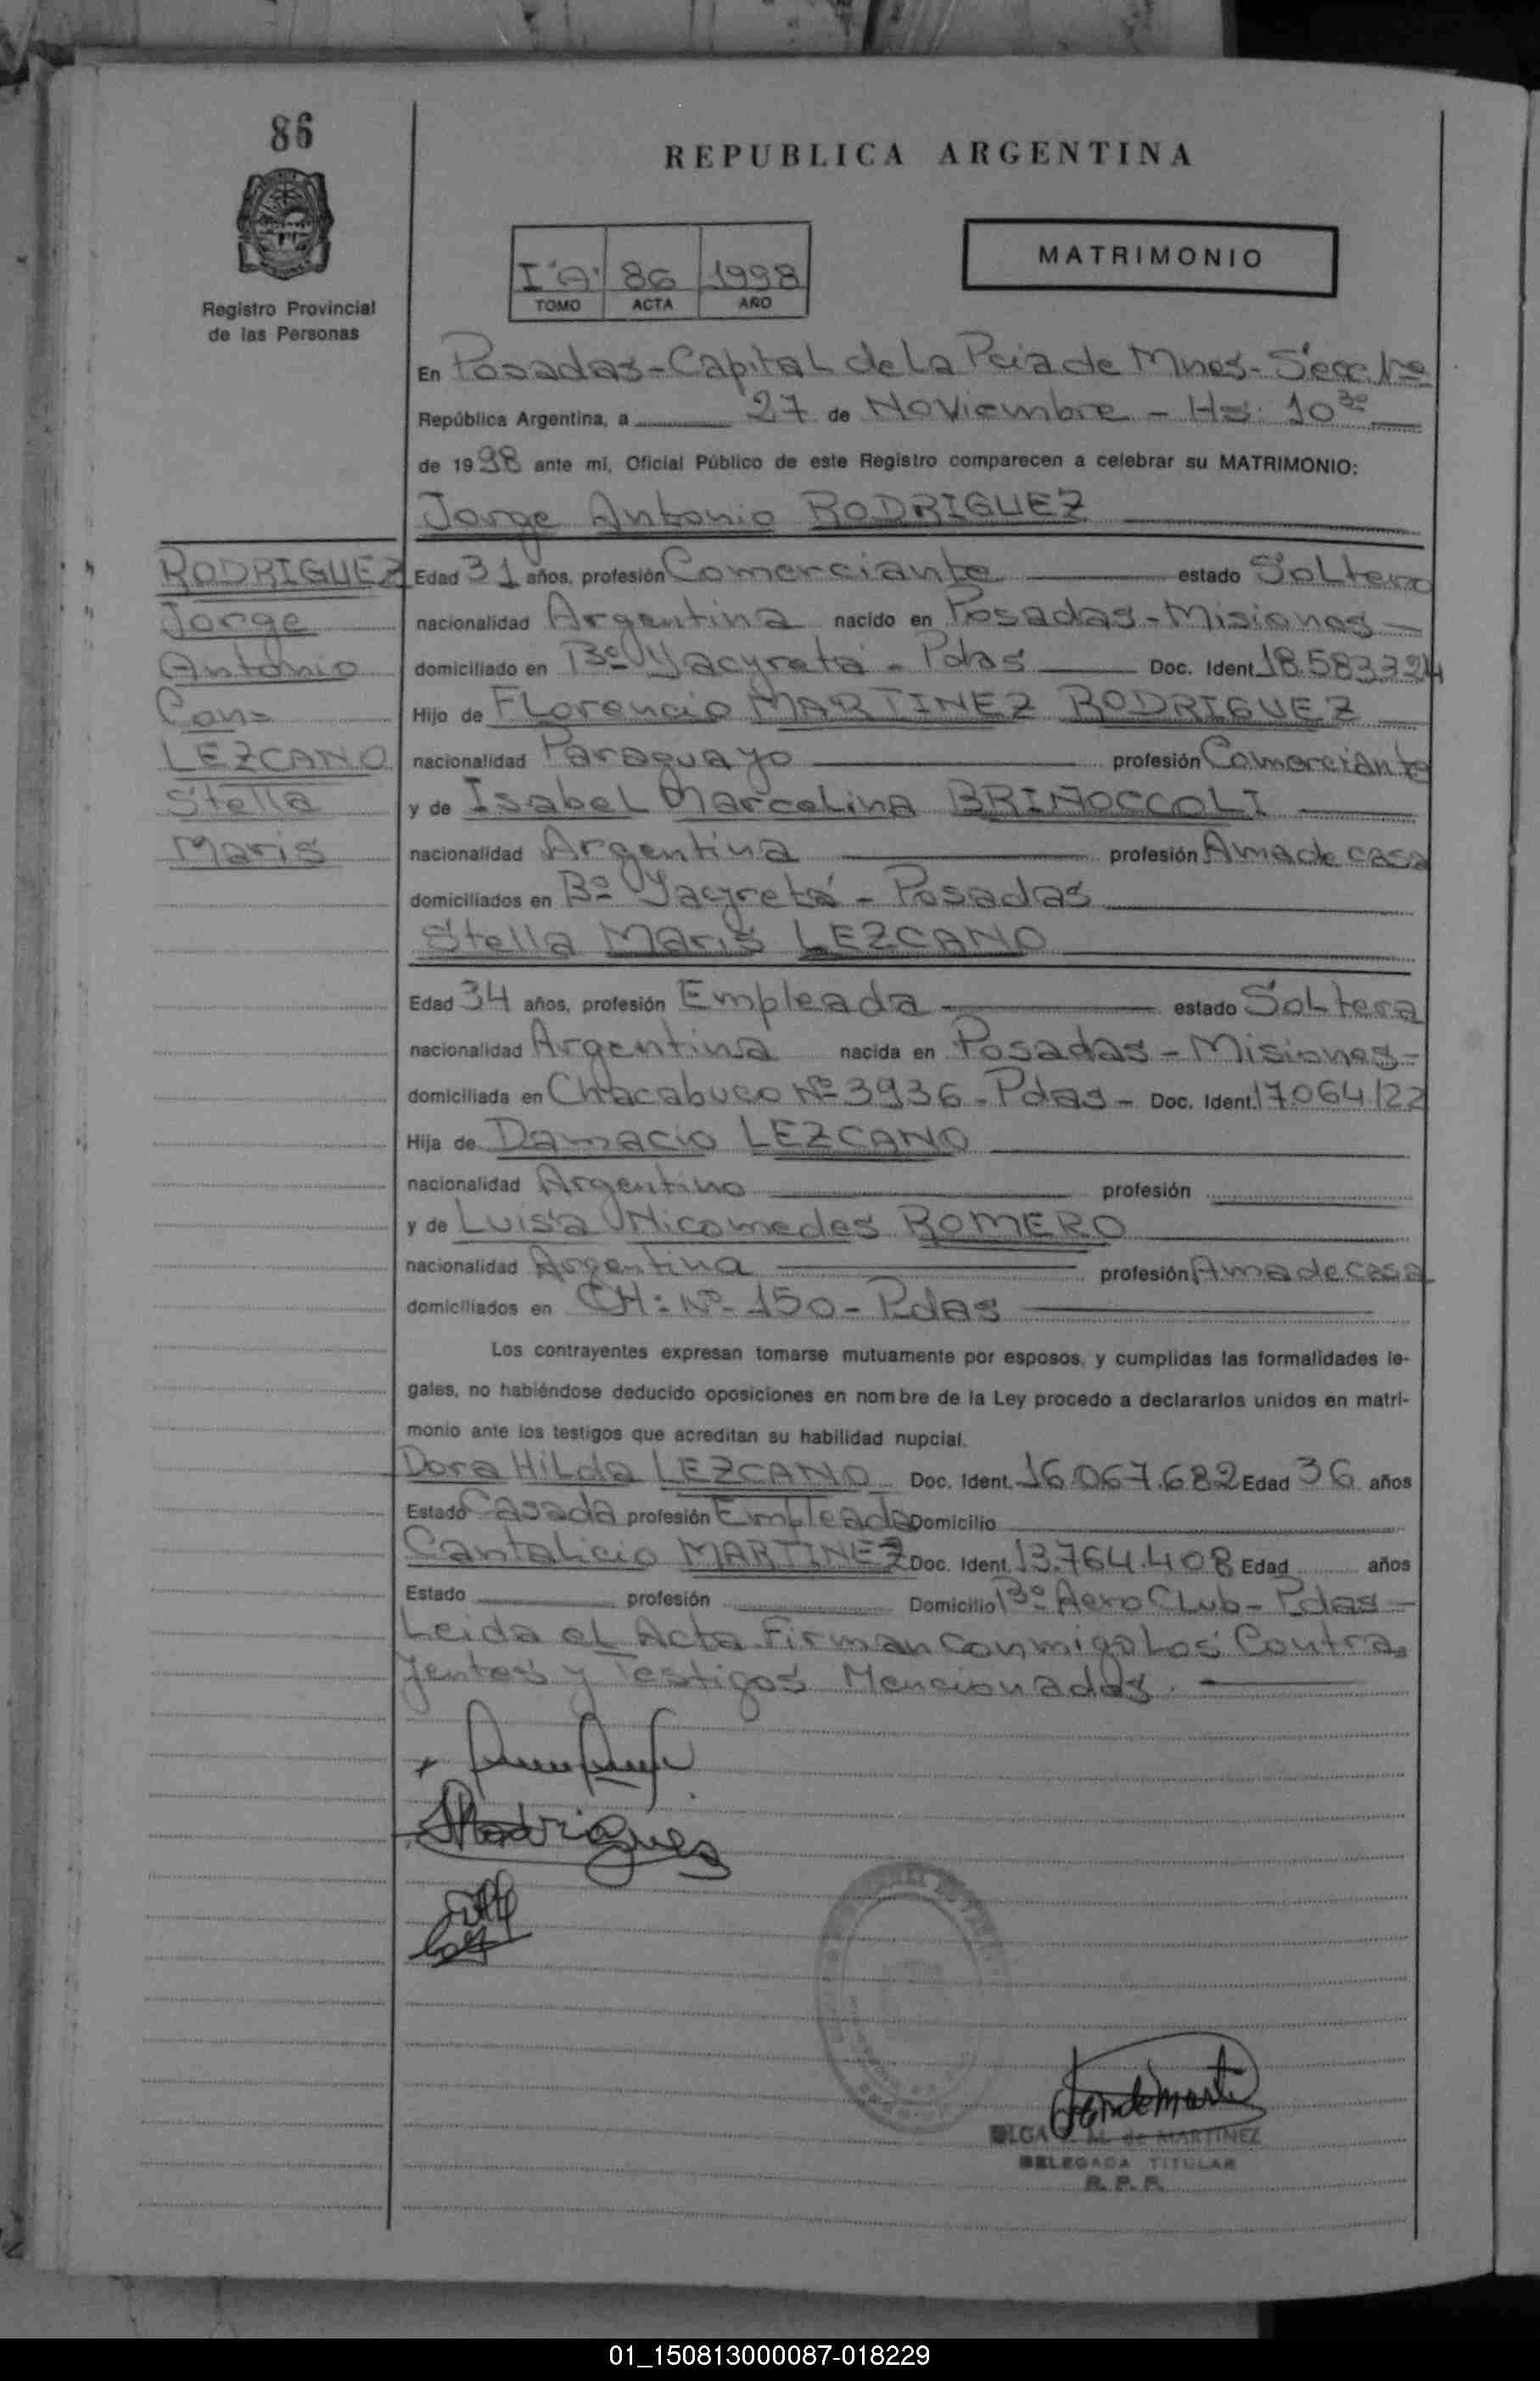 86
REPUBLICA ARGENTINA
MATRIMONIO
I "A" 86 1998
TOMO ACTA AÑO
Registro Provincial
de las Personas
En Posadas-Capital de La Pcia de Mnes- Secc. 1ra
República Argentina, a 27 de Noviembre - Hs: 10 30
de 1998 ante mí, Oficial Público de este Registro comparecen a celebrar su MATRIMONIO:
Jorge Antonio RODRIGUEZ
RODRIGUEZ
Jorge
Antonio
Con=
LEZCANO
Stella
Maris
Edad 31 años, profesión Comerciante estado Soltero
nacionalidad Argentina nacido en Posadas-Misiones-
domiciliado en Bº Yacyretá - Pdas Doc. Ident. 18.583.324
Hijo de Florencio MARTINEZ RODRIGUEZ
nacionalidad Paraguayo profesión Comerciante
y de Isabel Marcelina BRIÑOCCOLI
nacionalidad Argentina profesión Ama de casa
domiciliados en Bº Yacyretá - Posadas
Stella Maris LEZCANO
Edad 34 años, profesión Empleada estado Soltera
nacionalidad Argentina nacida en Posadas-Misiones-
domiciliada en Chacabuco Nº 3936-Pdas- Doc. Ident. 17.064.122
Hija de Damacio LEZCANO
nacionalidad Argentino profesión
y de Luisa Nicomedes ROMERO
nacionalidad Argentina profesión Ama de casa
domiciliados en CH: Nº 150-Pdas
Los contrayentes expresan tomarse mutuamente por esposos, y cumplidas las formalidades le-
gales, no habiéndose deducido oposiciones en nombre de la Ley procedo a declararlos unidos en matri-
monio ante los testigos que acreditan su habilidad nupcial.
Dora Hilda LEZCANO Doc. Ident. 16.067.682 Edad 36 años
Estado Casada profesión Empleada Domicilio
Cantalicio MARTINEZ Doc. Ident. 13.764.408 Edad años
Estado profesión Domicilio Bº Aero Club-Pdas-
Leida el Acta Firman Conmigo Los Contra
yentes y Testigos Mencionados.
Rodriguez
OLGA M. de MARTINEZ
DELEGADA TITULAR
R. P. P.
01_150813000087-018229